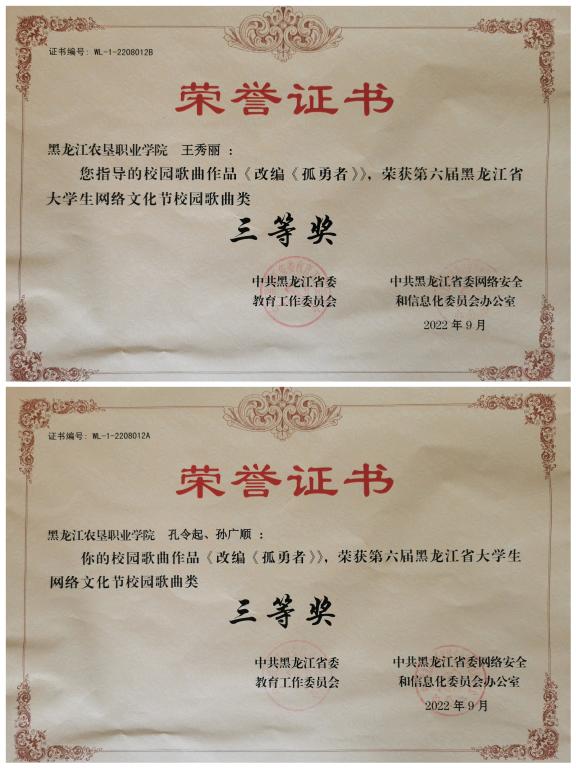 证书编号: WL-1-2208012B
荣誉证书
黑龙江农垦职业学院 王秀丽：
您指导的校园歌曲作品《改编《孤勇者》》，荣获第六届黑龙江省
大学生网络文化节校园歌曲类
三等奖
中共黑龙江省委 中共黑龙江省委网络安全
教育工作委员会 和信息化委员会办公室
2022年9月
证书编号: WL-1-2208012A
荣誉证书
黑龙江农垦职业学院 孔令起、孙广顺：
你的校园歌曲作品《改编《孤勇者》》，荣获第六届黑龙江省大学生
网络文化节校园歌曲类
三等奖
中共黑龙江省委 中共黑龙江省委网络安全
教育工作委员会 和信息化委员会办公室
2022年9月